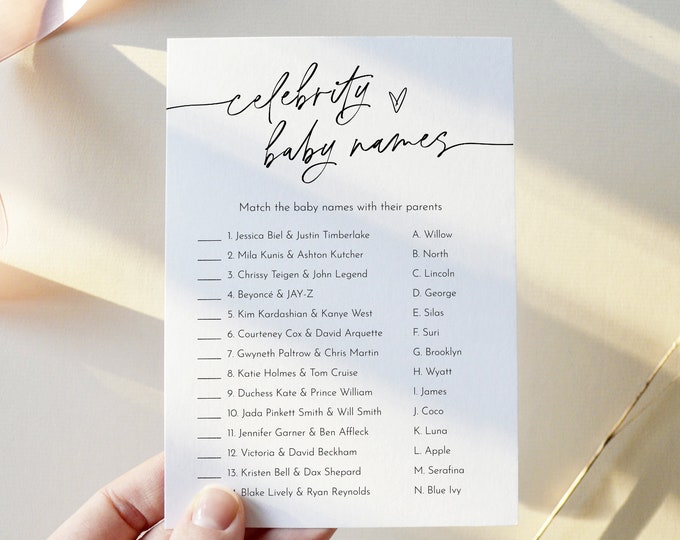 celebrity
baby names
Match the baby names with their parents
____ 1. Jessica Biel & Justin Timberlake A. Willow
____ 2. Mila Kunis & Ashton Kutcher B. North
____ 3. Chrissy Teigen & John Legend C. Lincoln
____ 4. Beyoncé & JAY-Z D. George
____ 5. Kim Kardashian & Kanye West E. Silas
____ 6. Courteney Cox & David Arquette F. Suri
____ 7. Gwyneth Paltrow & Chris Martin G. Brooklyn
____ 8. Katie Holmes & Tom Cruise H. Wyatt
____ 9. Duchess Kate & Prince William I. James
____ 10. Jada Pinkett Smith & Will Smith J. Coco
____ 11. Jennifer Garner & Ben Affleck K. Luna
____ 12. Victoria & David Beckham L. Apple
____ 13. Kristen Bell & Dax Shepard M. Serafina
Blake Lively & Ryan Reynolds N. Blue Ivy